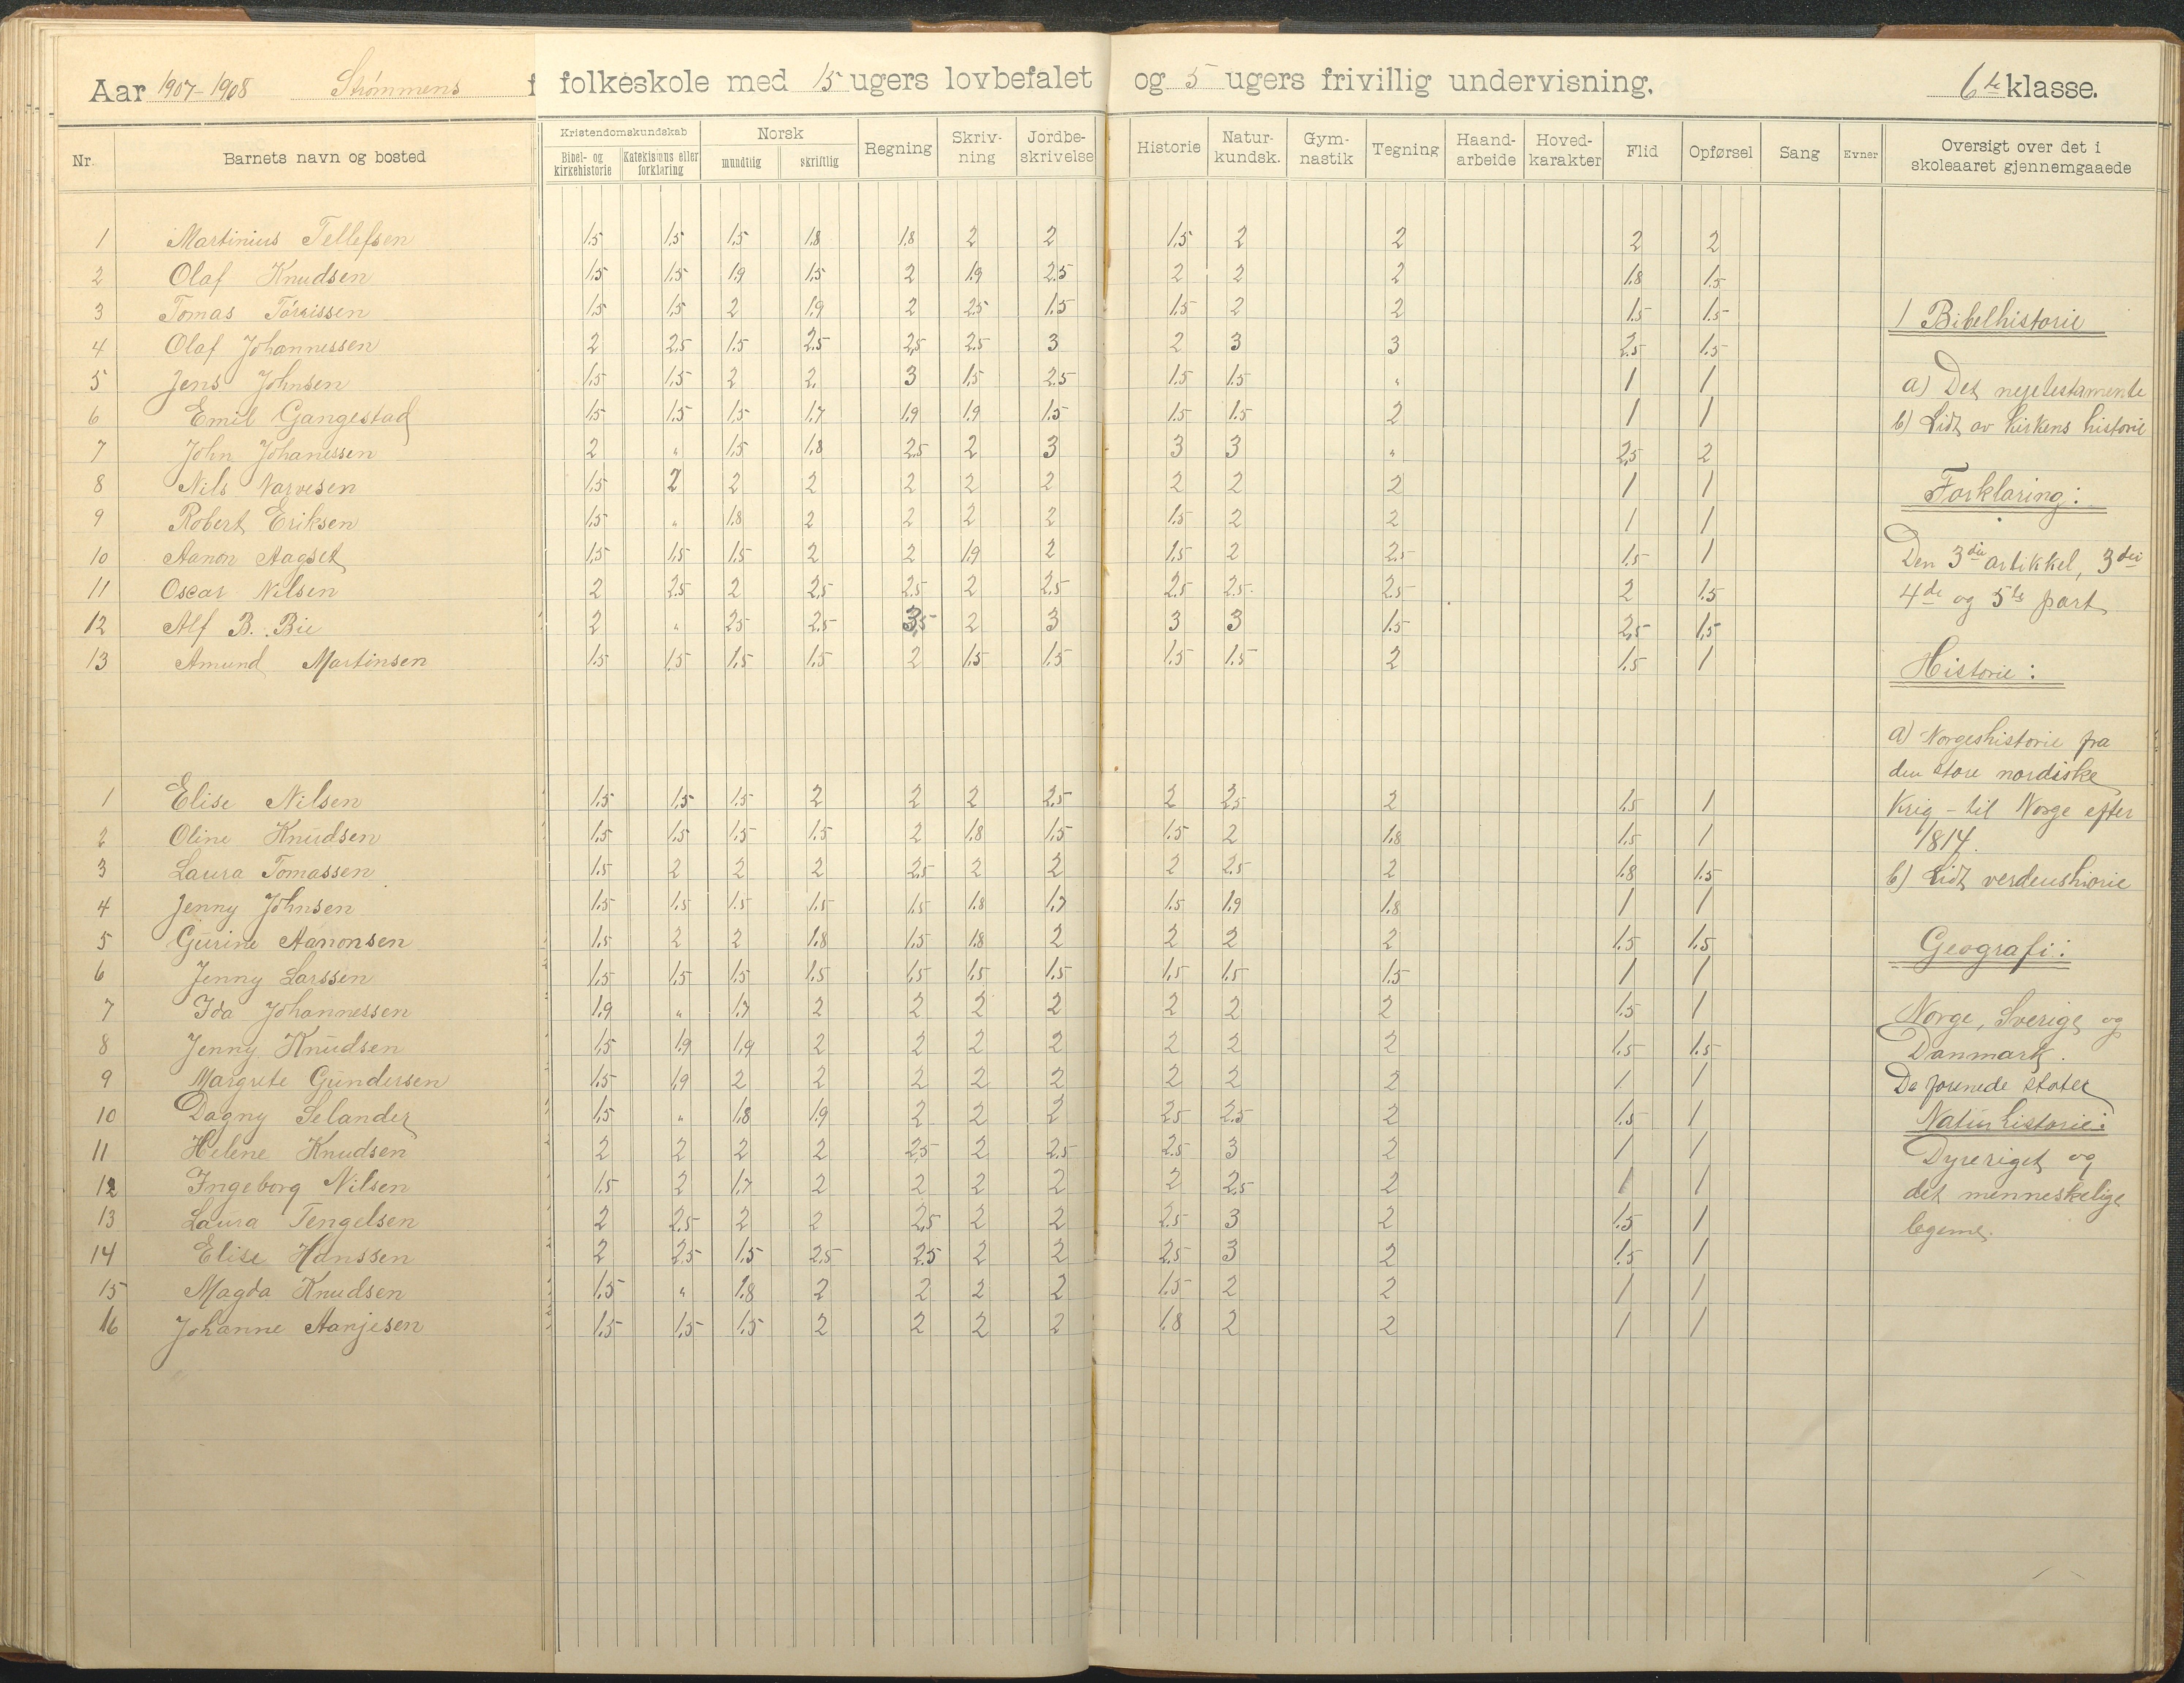 Aar 1907-1908 Strømmens folkeskole med 15 ugers lovbefalet og 5 ugers frivillig undervisning. 6te klasse.
Nr. Barnets navn og bosted Kristendomskundskab Bibel- og kirkehistorie Katekismus eller forklaring Norsk mundtlig skriftlig Regning Skriv-ning Jordbe-skrivelse Historie Natur-kundsk. Gym-nastik Tegning Haand-arbeide Hoved-karakter Flid Opførsel Sang Evner Oversigt over det i skoleaaret gjennemgaaede
1 Martinius Tellefsen 1.5 1.5 1.5 1.8 1.8 2 2 1.5 2 2 2 2
2 Olaf Knudsen 1.5 1.5 1.9 1.5 2 1.9 2.5 2 2 2 1.8 1.5
3 Tomas Tørrissen 1.5 1.5 2 1.9 2 2.5 1.5 1.5 2 2 1.5 1.5
4 Olaf Johannessen 2 2.5 1.5 2.5 2.5 2.5 3 2 3 3 2.5 1.5
5 Jens Johnsen 1.5 1.5 2 2 3 1.5 2.5 1.5 1.5 " 1 1
6 Emil Gangestad 1.5 1.5 1.5 1.7 1.9 1.9 1.5 1.5 1.5 2 1 1
7 John Johanessen 2 " 1.5 1.8 2.5 2 3 3 3 " 2.5 2
8 Nils Narvesen 1.5 2 2 2 2 2 2 2 2 2 1 1
9 Robert Eriksen 1.5 " 1.8 2 2 2 2 1.5 2 2 1 1
10 Aanon Aagset 1.5 1.5 1.5 2 2 1.9 2 1.5 2 2.5 1.5 1
11 Oscar Nilsen 2 2.5 2 2.5 2.5 2 2.5 2.5 2.5 2.5 2 1.5
12 Alf B. Bie 2 " 2.5 2.5 3.5 2 3 3 3 1.5 2.5 1.5
13 Amund Martinsen 1.5 1.5 1.5 1.5 2 1.5 1.5 1.5 1.5 2 1.5 1
1 Elise Nilsen 1.5 1.5 1.5 2 2 2 2.5 2 2.5 2 1.5 1
2 Oline Knudsen 1.5 1.5 1.5 1.5 2 1.8 1.5 1.5 2 1.8 1.5 1
3 Laura Tomassen 1.5 2 2 2 2.5 2 2 2 2.5 2 1.8 1.5
4 Jenny Johnsen 1.5 1.5 1.5 1.5 1.5 1.8 1.7 1.5 1.9 1.8 1 1
5 Gurine Aanonsen 1.5 2 2 1.8 1.5 1.8 2 2 2 2 1.5 1.5
6 Jenny Larssen 1.5 1.5 1.5 1.5 1.5 1.5 1.5 1.5 1.5 1.5 1 1
7 Ida Johannessen 1.9 " 1.7 2 2 2 2 2 2 2 1.5 1
8 Jenny Knudsen 1.5 1.9 1.9 2 2 2 2 2 2 2 1.5 1.5
9 Margrete Gundersen 1.5 1.9 2 2 2 2 2 2 2 2 1 1
10 Dagny Selander 1.5 " 1.8 1.9 2 2 2 2.5 2.5 2 1.5 1
11 Helene Knudsen 2 2 2 2 2.5 2 2.5 2.5 3 2 1 1
12 Ingeborg Nilsen 1.5 2 1.7 2 2 2 2 2 2.5 2 1 1
13 Laura Tengelsen 2 2.5 2 2 2.5 2 2 2.5 3 2 1.5 1
14 Elise Hanssen 2 2.5 1.5 2.5 2.5 2 2 2.5 3 2 1.5 1
15 Magda Knudsen 1.5 " 1.8 2 2 2 2 1.5 2 2 1 1
16 Johanne Aanjesen 1.5 1.5 1.5 2 2 2 2 1.8 2 2 1 1
1 Bibelhistorie
a) Det nyetestamente
b) Lidt av kirkens historie
Forklaring:
Den 3die artikkel, 3die
4de og 5te part
Historie:
a) Norgeshistorie fra
den store nordiske
krig - til Norge efter
1814.
b) Lidt verdenshiorie
Geografi:
Norge, Sverige og
Danmark.
De forenede stater
Naturhistorie:
Dyreriget og
det menneskelige
legeme.